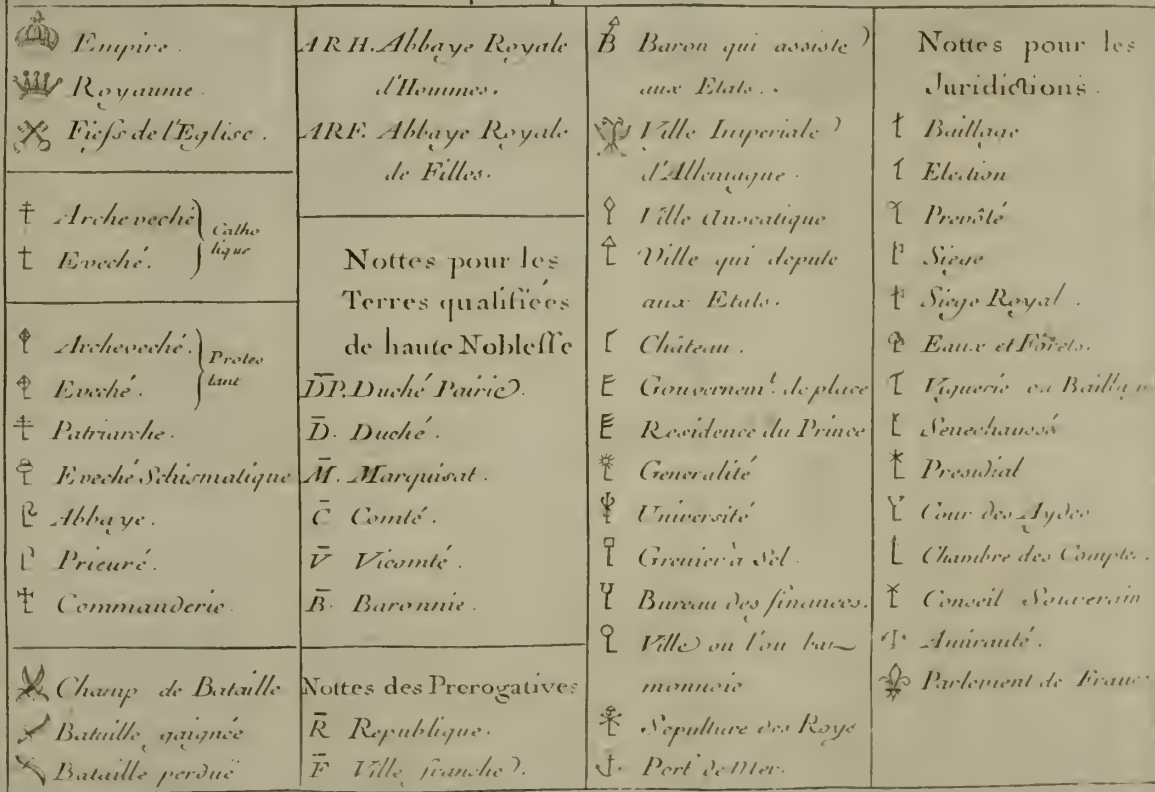 Empire.
Royaume.
Fiefs de l'Eglise.
Archeveché
Eveché.
Catho
lique
Archeveché.
Eveché.
Protes
tant
Patriarche.
Eveché Schismatique
Abbaye.
Prieuré.
Commanderie.
Champ de Bataille
Bataille gaignée
Bataille perduë
ARH. Abbaye Royale
d'Hommes.
ARF. Abbaye Royale
de Filles.
Nottes pour les
Terres qualifiées
de haute Noblesse
DP. Duché Pairie.
D. Duché.
M. Marquisat.
C Comté.
V Vicomté.
B. Baronnie.
Nottes des Prerogatives
R Republique.
F Ville franche.
B Baron qui assiste
aux Etats.
Ville Imperiale
d'Allemagne.
Ville Anseatique
Ville qui depute
aux Etats.
Château.
Gouvernemt. de place
Residence du Prince
Generalité
Université
Grenier à Sel.
Bureau des finances.
Ville ou l'on bat
monnoie
Sepulture des Roys
Port de Mer.
Nottes pour les
Juridictions.
Baillage
Election
Prevôté
Siege
Siege Royal.
Eaux et Fôrets.
Viguerie ou
Senechaussé
Presidial
Cour des Aydes
Chambre des Compte
Conseil Souverain
Amirauté.
Parlement de Franc